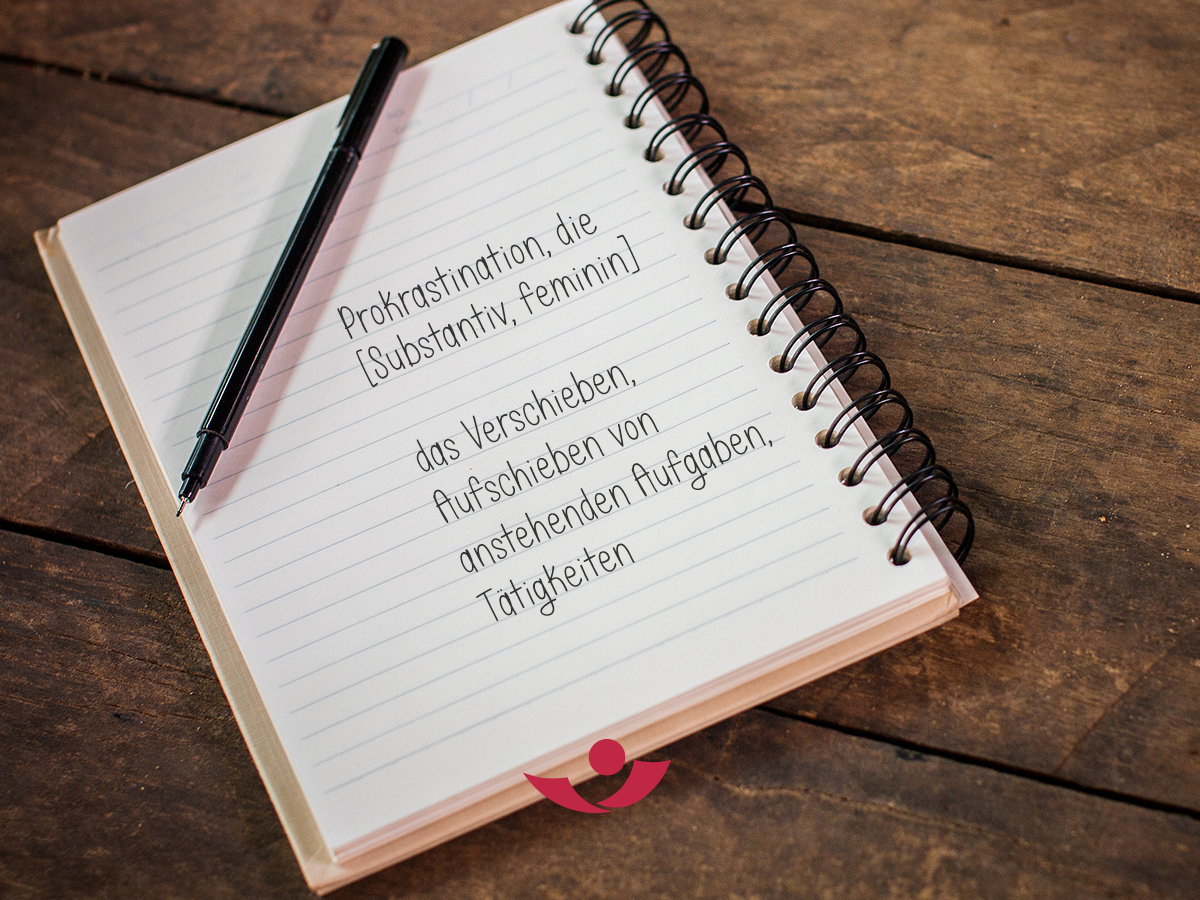 Prokrastination, die
[Substantiv, feminin]
das Verschieben,
Aufschieben von
anstehenden Aufgaben,
Tätigkeiten